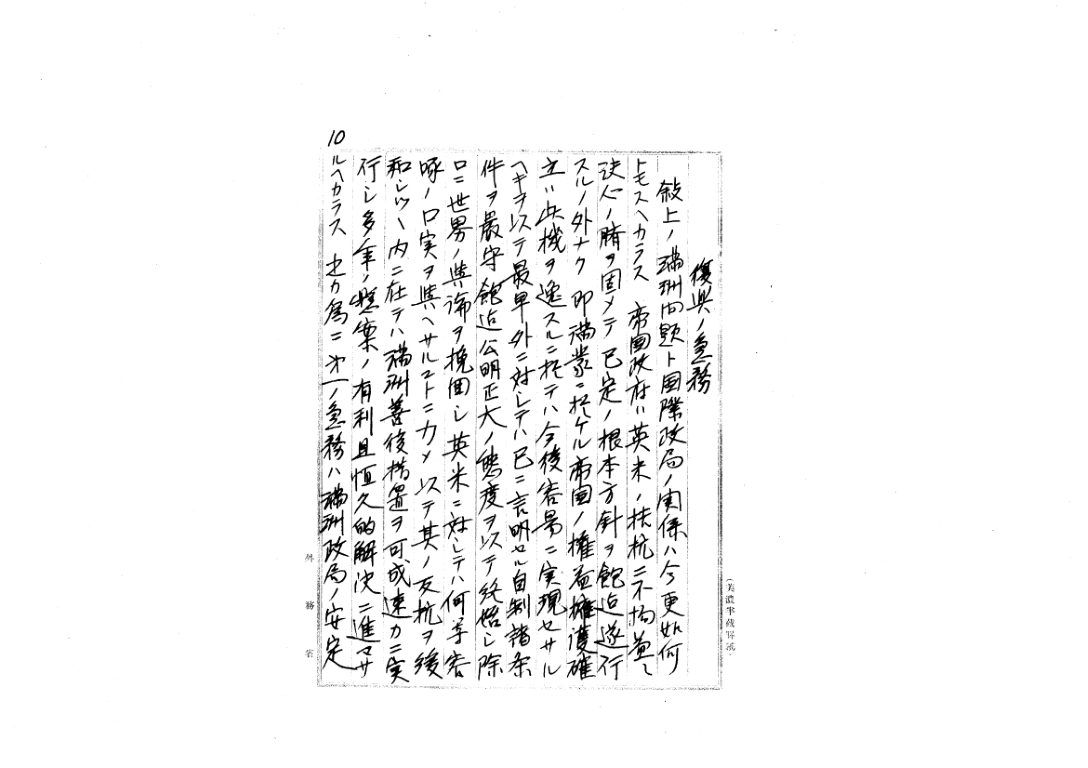 10
復興ノ急務
敍上ノ満洲問題ト国際政局ノ関係ハ今更如何
トモスヘカラス 帝国政府ハ英米ノ抗ニ不拘益々
決心ノ臍ヲ固メテ已定ノ根本方針ヲ飽迄遂行
スルノ外ナク 即満蒙ニ於ケル帝国ノ権益擁護確
立ハ此機ヲ逸スルニ於テハ今後容易ニ実現セサル
ヘキヲ以テ最早外ニ対シテハ已ニ言明セル自制諸条
件ヲ厳守飽迄公明正大ノ態度ヲ以テ終始シ除
ロニ世界ノ輿論ヲ挽回シ英米ニ対シテハ何等容
喙ノ口実ヲ与ヘサルコトニ力メ 以テ其ノ反抗ヲ緩
和シツヽ内ニ在テハ満洲善後措置ヲ可成速カニ実
行シ多年ノ懸案ノ有利且恒久的解決ニ進マサ
ルヘカラス 之カ為ニ第一ノ急務ハ満洲政局ノ安定
外務省